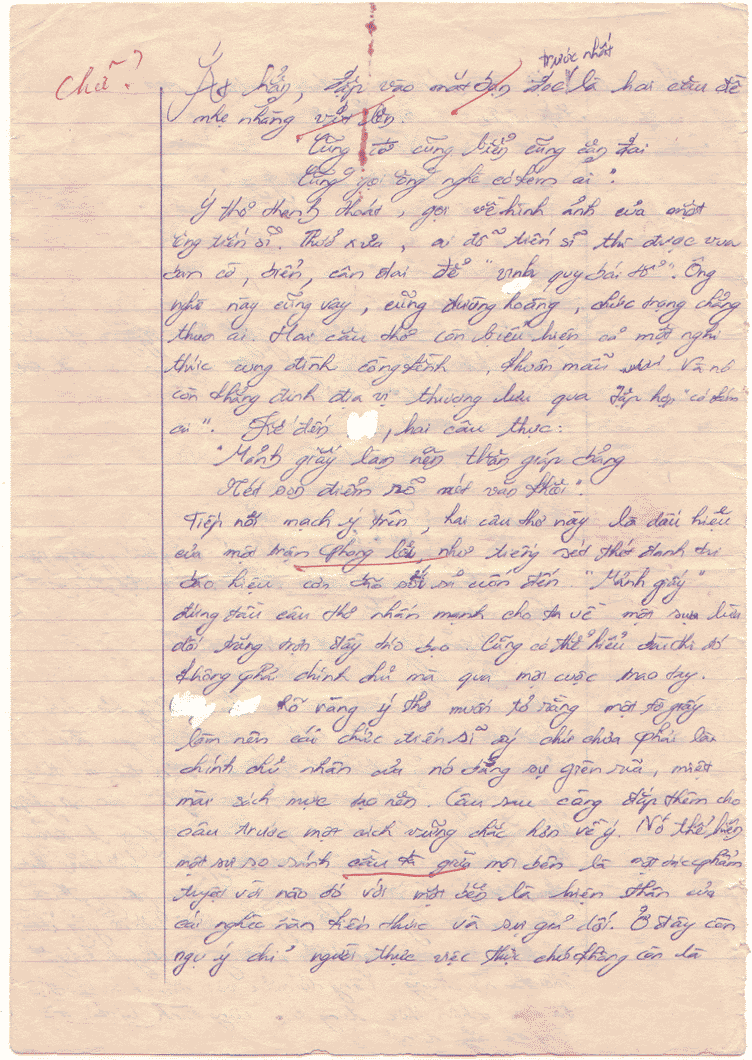 Chữ?
trước nhất
Ắt hẳn, đập vào mắt bạn đọc là hai câu đề
nhẹ nhàng vút lên:
"Cũng cờ cũng biển cũng cân đai
Cũng gọi ông nghè có kém ai".
Ý thơ thanh thoát, gợi về hình ảnh của một
ông tiến sĩ. Thuở xưa, ai đỗ tiến sĩ thì được vua
ban cờ, biển, cân đai để "vinh quy bái tổ". Ông
nghè này cũng vậy, cũng đường hoàng, chức trọng chẳng
thua ai. Hai câu thơ còn biểu hiện cả một nghi
thức cung đình cồng kềnh, khuôn mẫu. Và nó
còn khẳng định địa vị thượng lưu qua tập hợp "có kém
ai". Kế đến, hai câu thực:
"Mảnh giấy làm nên thân giáp bảng
Nét son điểm rõ mặt văn khôi".
Tiếp nối mạch ý trên, hai câu thơ này là dấu hiệu
của một trận phong lôi, như tiếng sét thét đanh tai
báo hiệu cơn bão sắp sửa cuốn đến. "Mảnh giấy"
đứng đầu câu thơ nhấn mạnh cho ta về một sự lừa
dối trắng trợn đầy táo bạo. Cũng có thể hiểu địa chỉ đó
không phải chính chủ mà qua một cuộc trao tay.
Rõ ràng ý thơ muốn tỏ rằng một tờ giấy
làm nên cái chức tiến sĩ ấy chứ chưa phải là
chính chủ nhân của nó bằng sự giùi rũa, miệt
mài sách mực tạo nên. Câu sau càng đắp thêm cho
câu trước một cách vững chắc hơn về ý. Nó thể hiện
một sự so sánh cầu kì giữa một bên là một đức phẩm
tuyệt vời nào đó với một bên là hiện thân của
cái nghèo nàn kiến thức và sự giả dối. Ở đây còn
ngụ ý chỉ người thực việc thực chứ không còn là